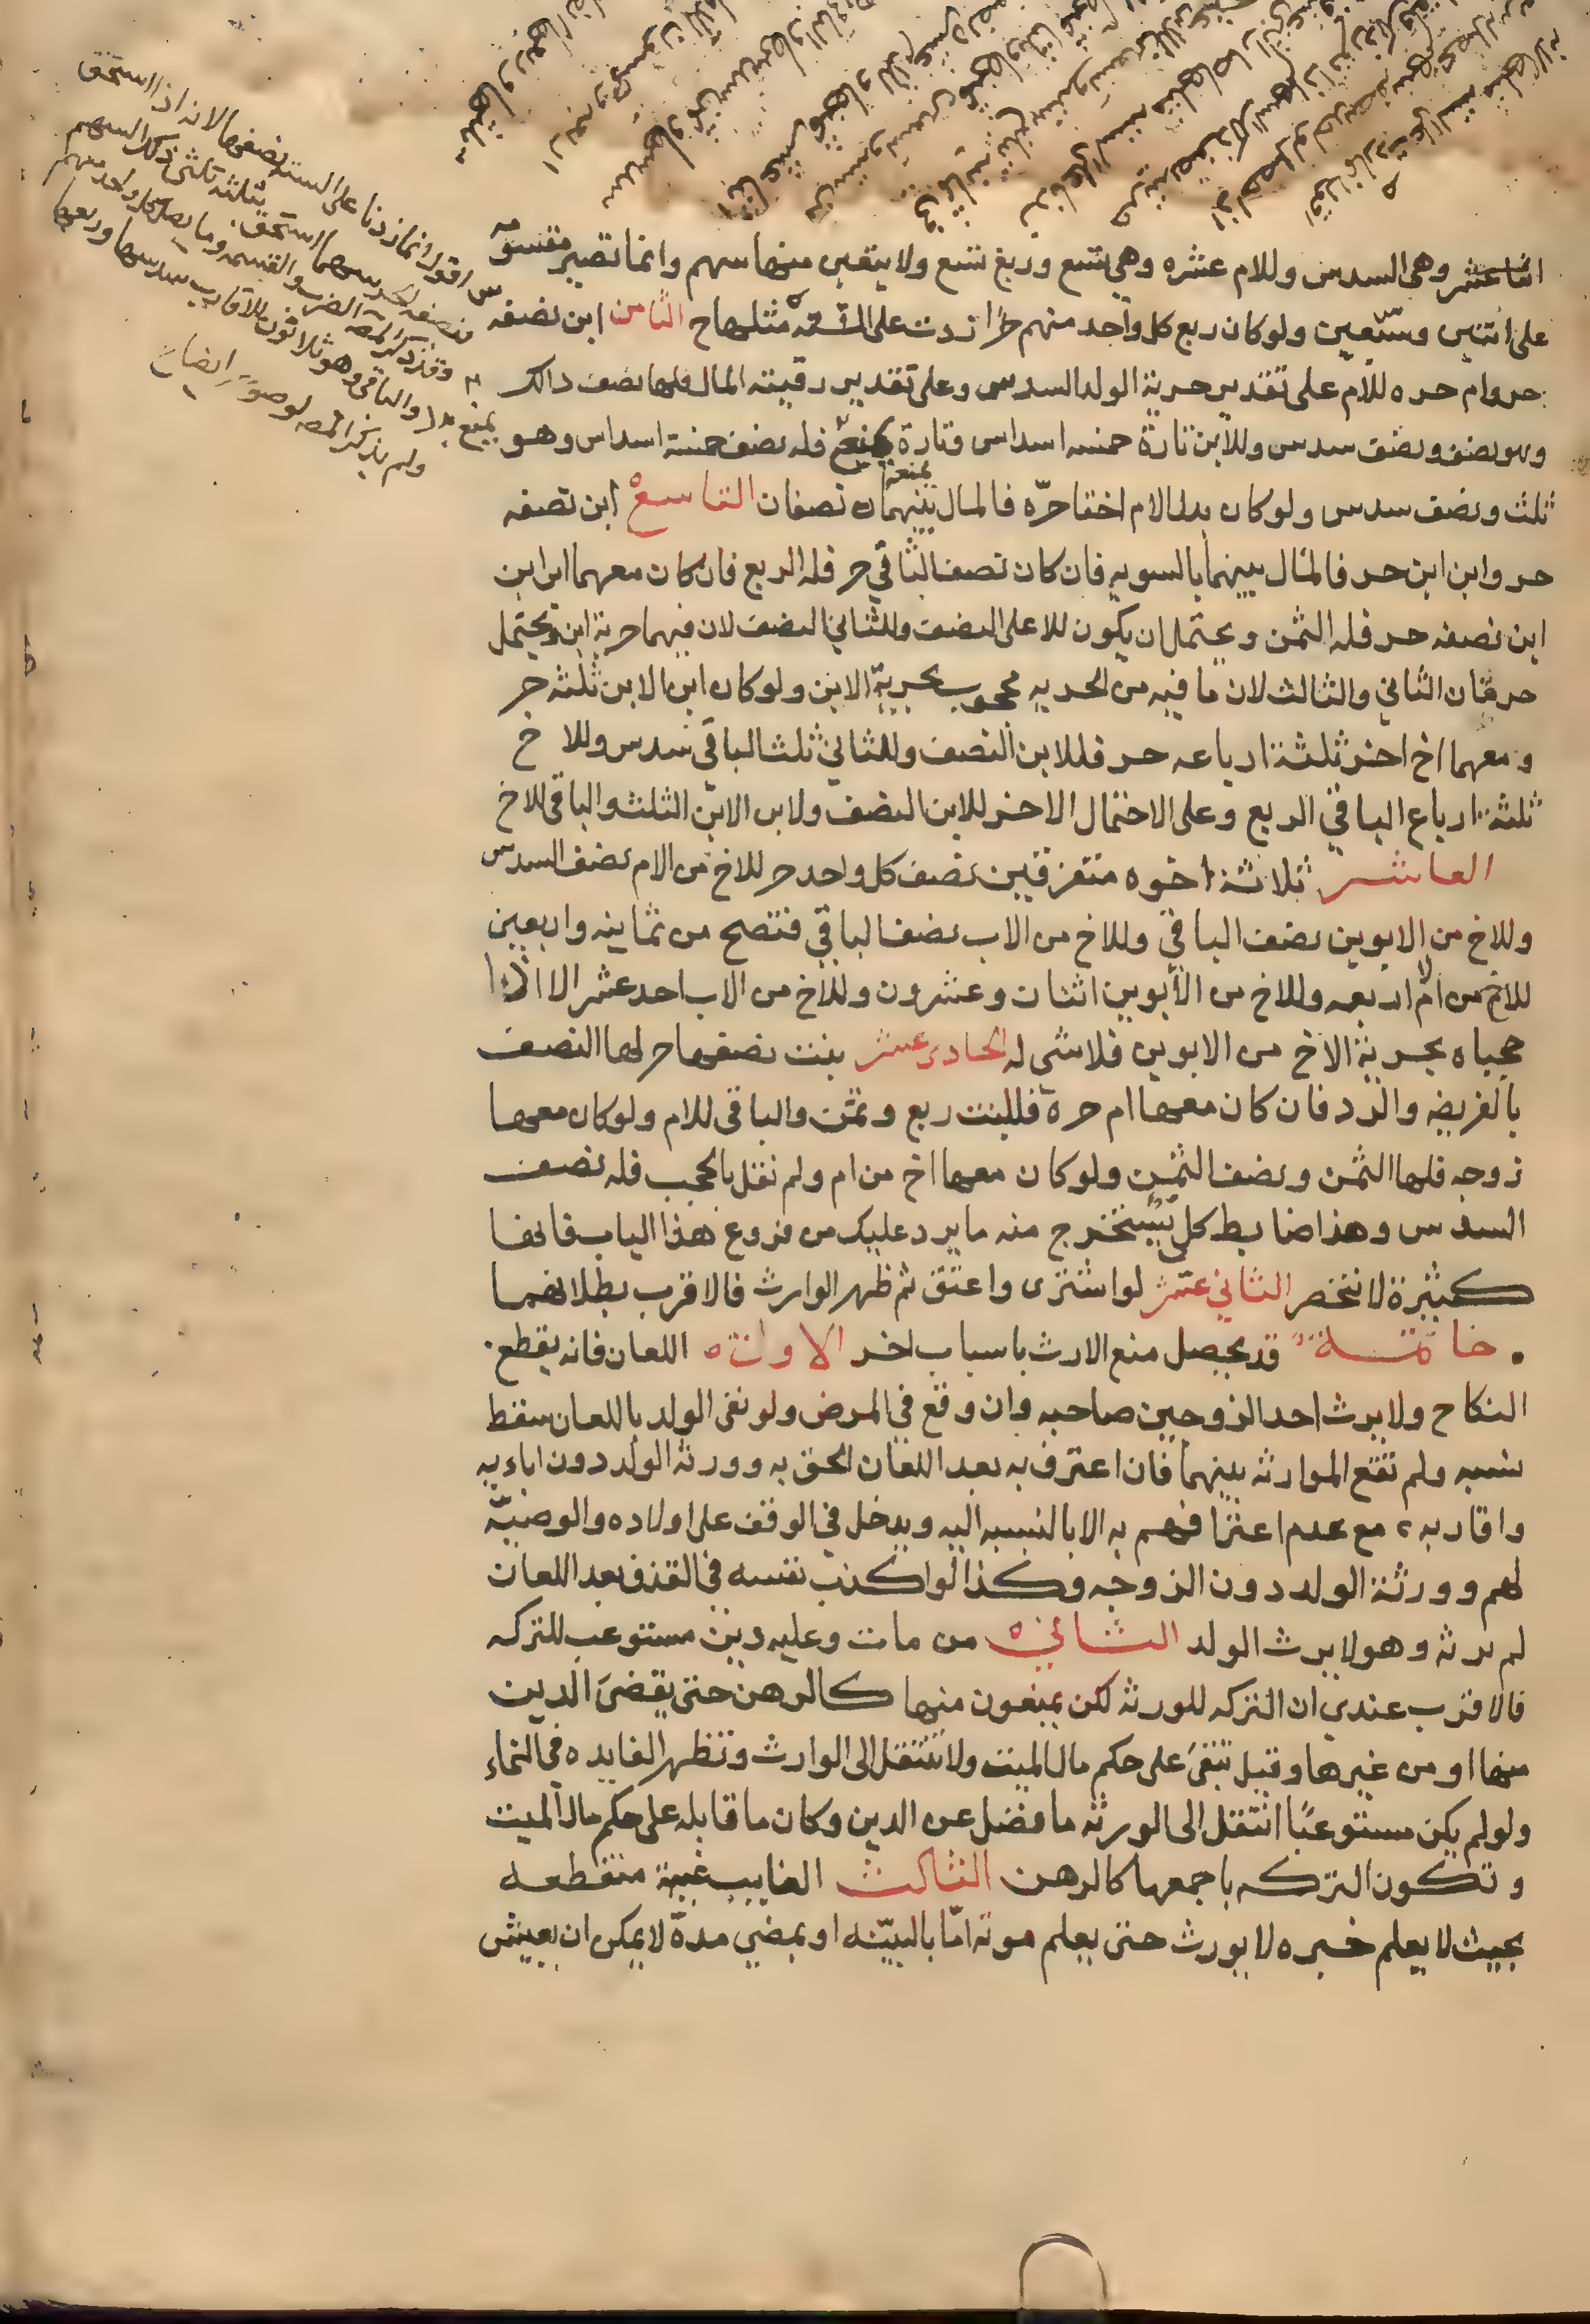 اثنا عشر وهي السدس وللام عشره وهي تسع وربع تسع ولا يتعين منها سهم وانما تصير مقسومه
على اثنين وسبعين ولو كان ربع كل واحد منهم حرا زدت على الستة مثلها ح الثامن ابن نصفه
حر وام حره للام على تقدير حرية الولد السدس وعلى تقدير رقيته المال فلها نصف ذالك
وهو نصف ونصف سدس وللابن تارة خمسه اسداس وتارة يمنع فله نصف خمسة اسداس وهو
ثلث ونصف سدس ولو كان بدل الام اختا حرّه فالمال بينهما نصفان التاسع ابن نصفه
حر وابن ابن حر فالمال بينهما بالسويه فان كان نصف الثاني حر فله الربع فان كان معهما ابن ابن
ابن نصفه حر فله الثمن ويحتمل ان يكون للاعلى النصف وللثاني النصف لان فيهما حرية ابن ويحتمل
حرمان الثاني والثالث لان ما فيه من الحريه محجوب بحرية الابن ولو كان ابن الابن ثلثه حر
ومعهما اخ اخر ثلثة ارباعه حر فللابن النصف وللثاني ثلث الباقي سدس وللاخ
ثلثة ارباع الباقي الربع وعلى الاحتمال الاخر للابن النصف ولابن الابن الثلث والباقي للاخ
العاشر ثلاثة اخوه متفرقين نصف كل واحد حر للاخ من الام نصف السدس
وللاخ من الابوين نصف الباقي وللاخ من الاب نصف الباقي فتصح من ثمانيه واربعين
للاخ من الام اربعه وللاخ من الأبوين اثنان وعشرون وللاخ من الاب احد عشر الا اذا
حجباه بحرية الاخ من الابوين فلا شي له الحادى عشر بنت نصفها حر لها النصف
بالفريضه والرد فان كان معها ام حرة فللبنت ربع وثمن والباقي للام ولو كان معها
زوجه فلها الثمن ونصف الثمن ولو كان معها اخ من ام ولم نقل بالحجب فله نصف
السدس وهذا ضابط كلي يستخرج منه ما يرد عليك من فروع هذا الباب فانها
كثيرة لا تنحصر الثاني عشر لو اشترى واعتق ثم ظهر الوارث فالاقرب بطلانهما
خاتمة قد يحصل منع الارث باسباب اخر الاول اللعان فانه يقطع
النكاح ولا يرث احد الزوجين صاحبه وان وقع في المرض ولو نفى الولد باللعان سقط
نسبه ولم تقع الموارثه بينهما فان اعترف به بعد اللعان الحق به وورثه الولد دون ابايه
واقاربه مع عدم اعترافهم به الا بالنسبه اليه ويدخل في الوقف على اولاده والوصيّه
لهم وورثة الولد دون الزوجه وكذا لو اكذب نفسه في القذف بعد اللعان
لم ترثه وهو لا يرث الولد الثاني من مات وعليه دين مستوعب للتركه
فالاقرب عندي ان التركه للورثه لكن يمنعون منها كالرهن حتى يقضى الدين
منها او من غيرها وقيل تبقى على حكم مال الميت ولا تنتقل الى الوارث وتظهر الفايده في النماء
ولو لم يكن مستوعبًا انتقل الى الورثه ما فضل عن الدين وكان ما قابله على حكم مال الميت
وتكون التركه باجمعها كالرهن الثالث الغايب غيبة منقطعه
بحيث لا يعلم خبره لا يورث حتى يعلم موته امّا بالبيّنه او بمضي مدة لا يمكن ان يعيش